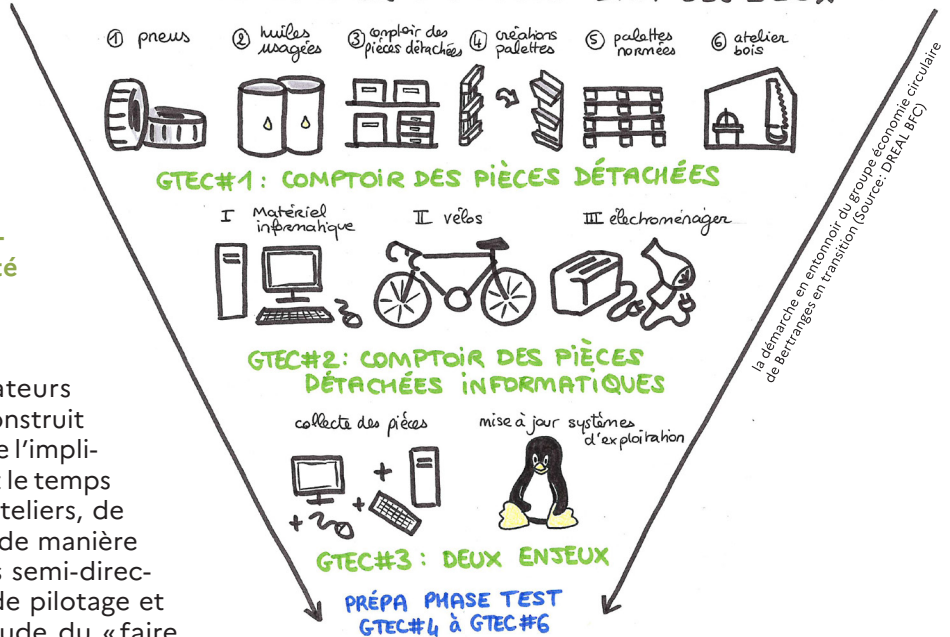 ① pneus
② huiles
usagées
③ comptoir des
pièces détachées
④ créations
palettes
⑤ palettes
normées
⑥ atelier
bois
GTEC#1 : COMPTOIR DES PIÈCES DÉTACHÉES
I Matériel
informatique
II vélos
III électroménager
GTEC#2 : COMPTOIR DES PIÈCES
DÉTACHÉES INFORMATIQUES
collecte des pièces
mise à jour systèmes
d'exploitation
GTEC#3 : DEUX ENJEUX
PRÉPA PHASE TEST
GTEC#4 à GTEC#6
la démarche en entonnoir du groupe économie circulaire
de Bertranges en transition (Source : DREAL BFC)
té
ateurs
onstruit
e l'impli-
t le temps
teliers, de
de manière
s semi-direc-
de pilotage et
ude du « faire